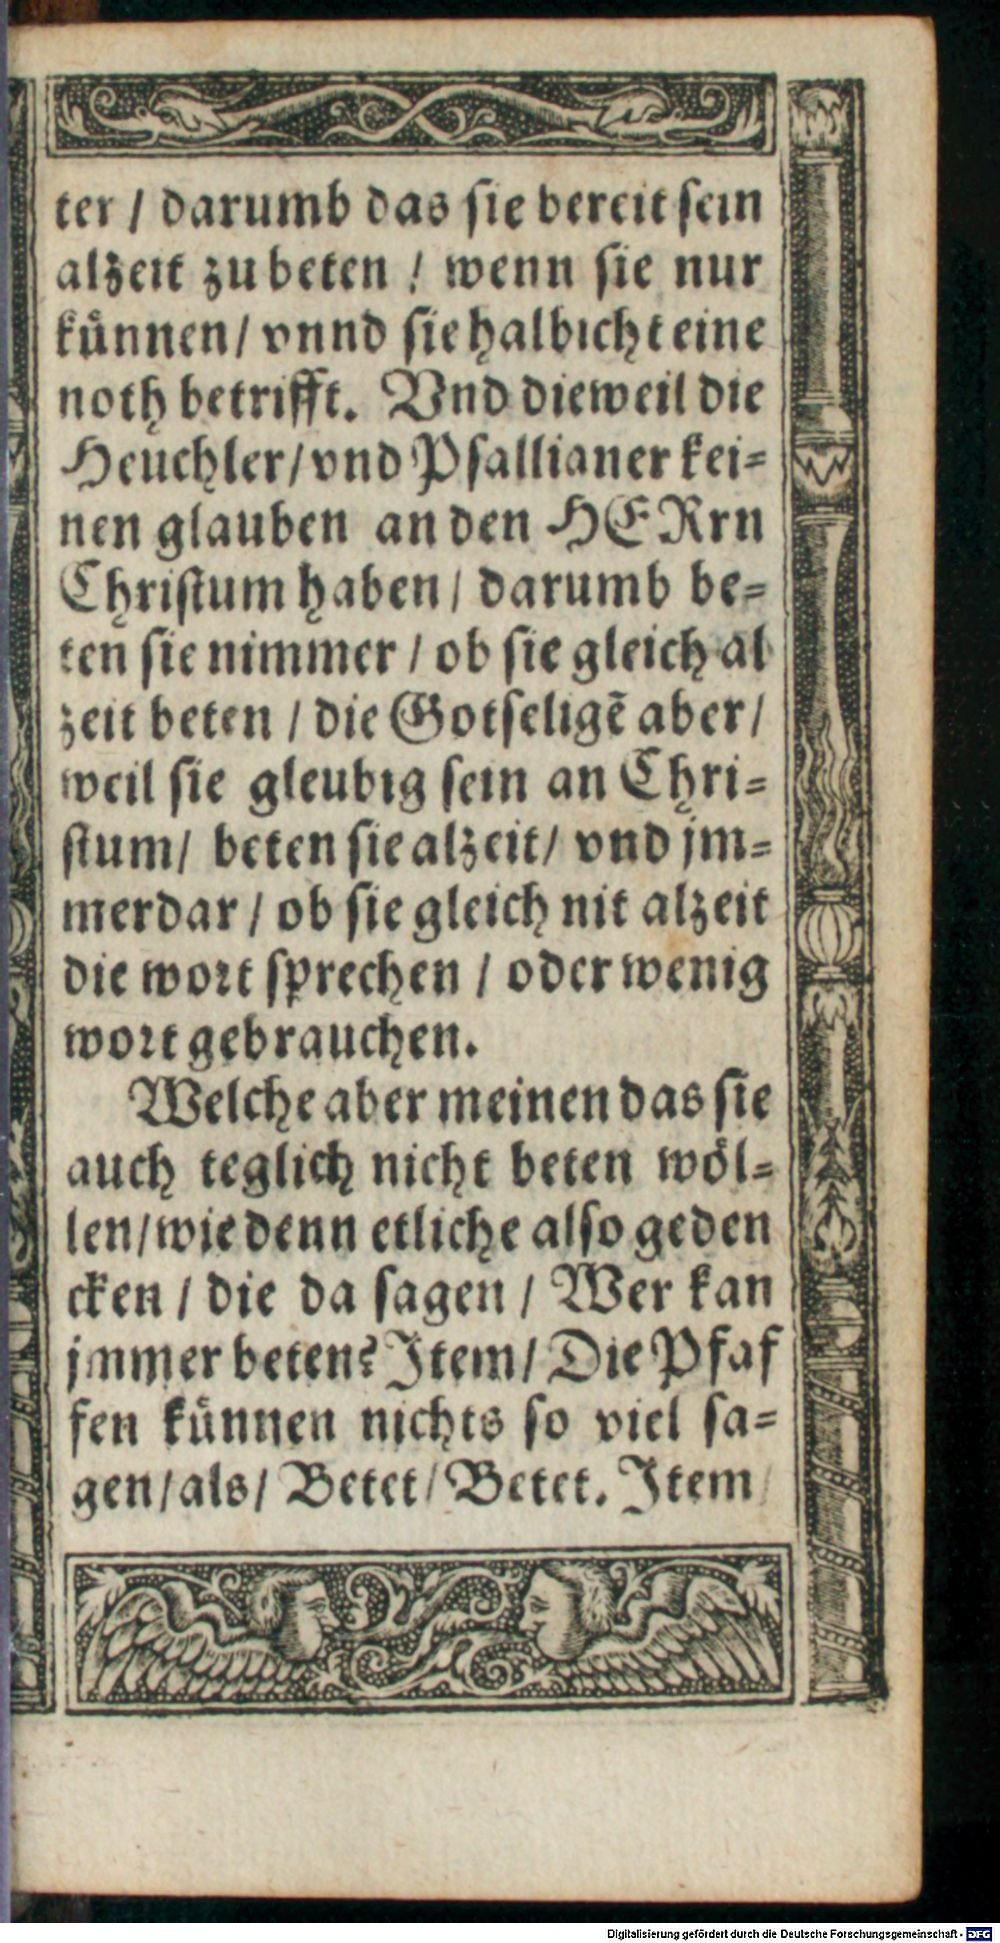 ter / darumb das sie bereit sein
alzeit zu beten / wenn sie nur
kůnnen / vnnd sie halb icht eine
noth betrifft. Vnd dieweil die
Heuchler / vnd Psallianer kei=
nen glauben an den HERrn
Christum haben / darumb be=
ten sie nimmer / ob sie gleich al
zeit beten / die Gotseligẽ aber /
weil sie gleubig sein an Chri=
stum / beten sie alzeit / vnd jm=
merdar / ob sie gleich nit alzeit
die wort sprechen / oder wenig
wort gebrauchen.
Welche aber meinen das sie
auch teglich nicht beten wöl=
len / wie denn etliche also geden
cken / die da sagen / Wer kan
jmmer beten? Item / Die Pfaf
fen kůnnen nichts so viel sa=
gen / als / Betet / Betet. Item /
Digitalisierung gefördert durch die Deutsche Forschungsgemeinschaft - DFG